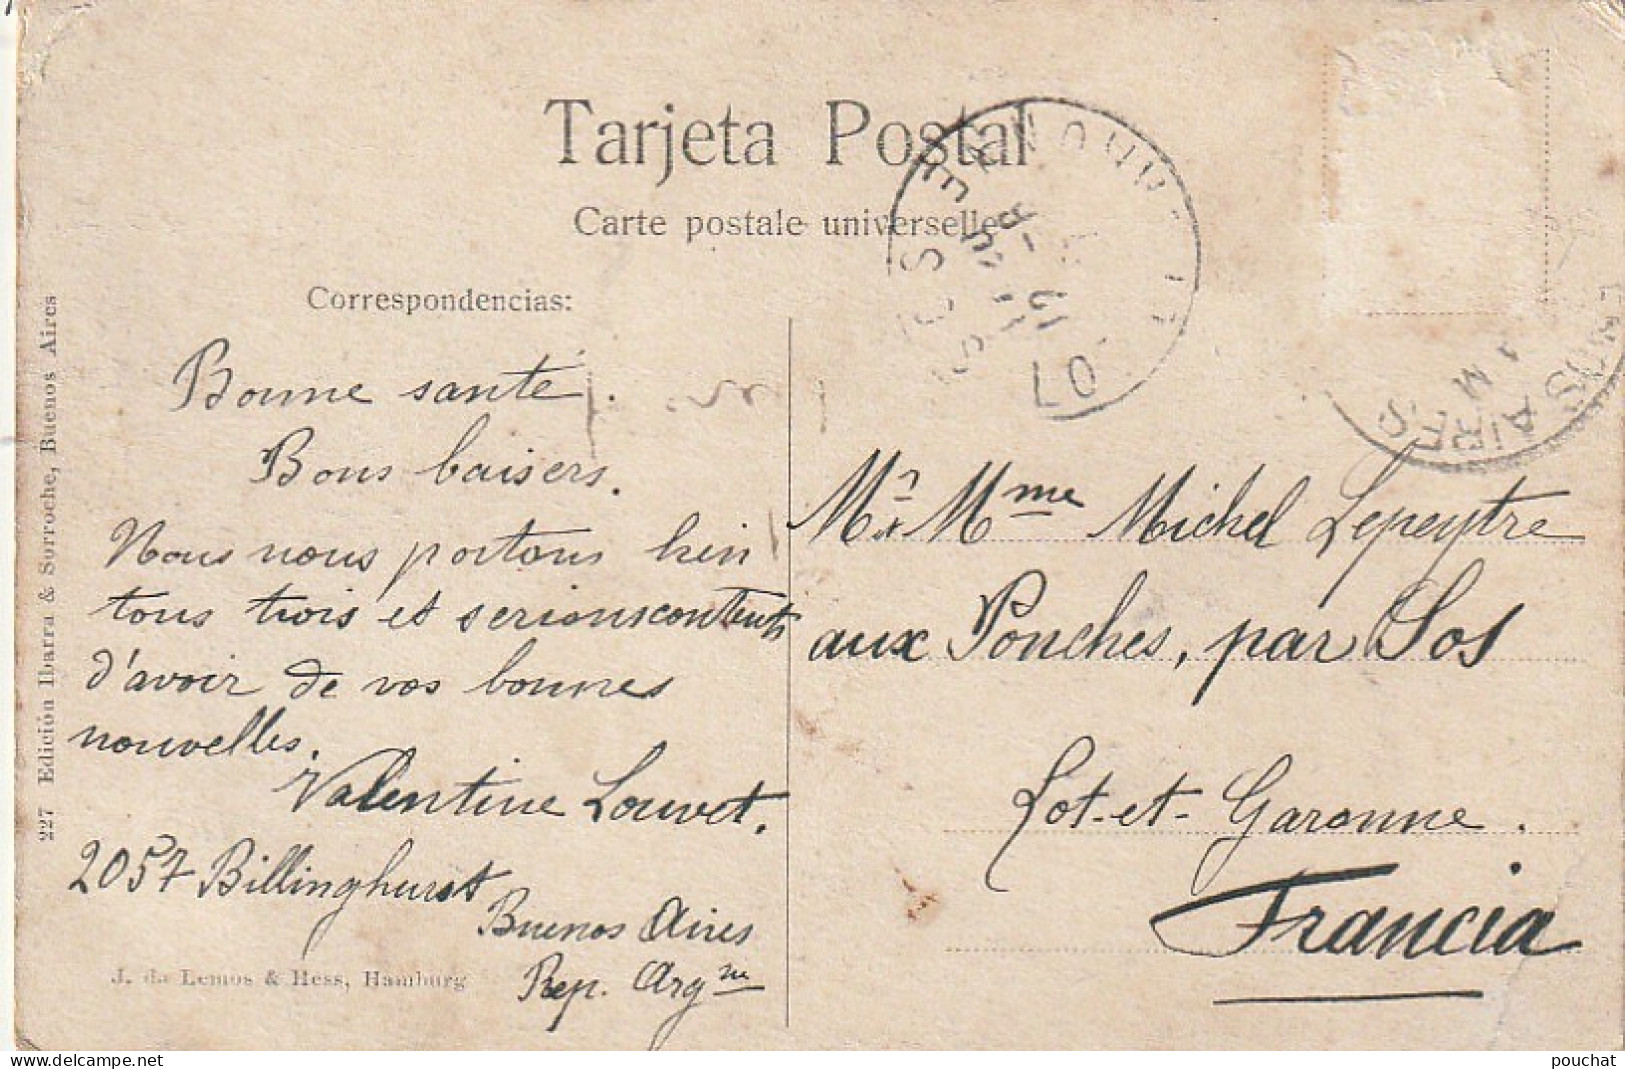 Tarjeta Postal
Carte postale universelle
Correspondencias:
Bonne santé.
Bons baisers.
Nous nous portons bien
tous trois et serions contents
d'avoir de vos bonnes
nouvelles.
Valentine Louvet.
2057 Billinghurst
Buenos Aires
Rep. Argne
J. de Lemos & Hess, Hamburg
227 Edición Ibarra & Sorroche, Buenos Aires
Mr & Mme Michel Lepeytre
aux Ponches, par Sos
Lot-et-Garonne.
Francia
07
BUENOS AIRES
1 M
pouchat